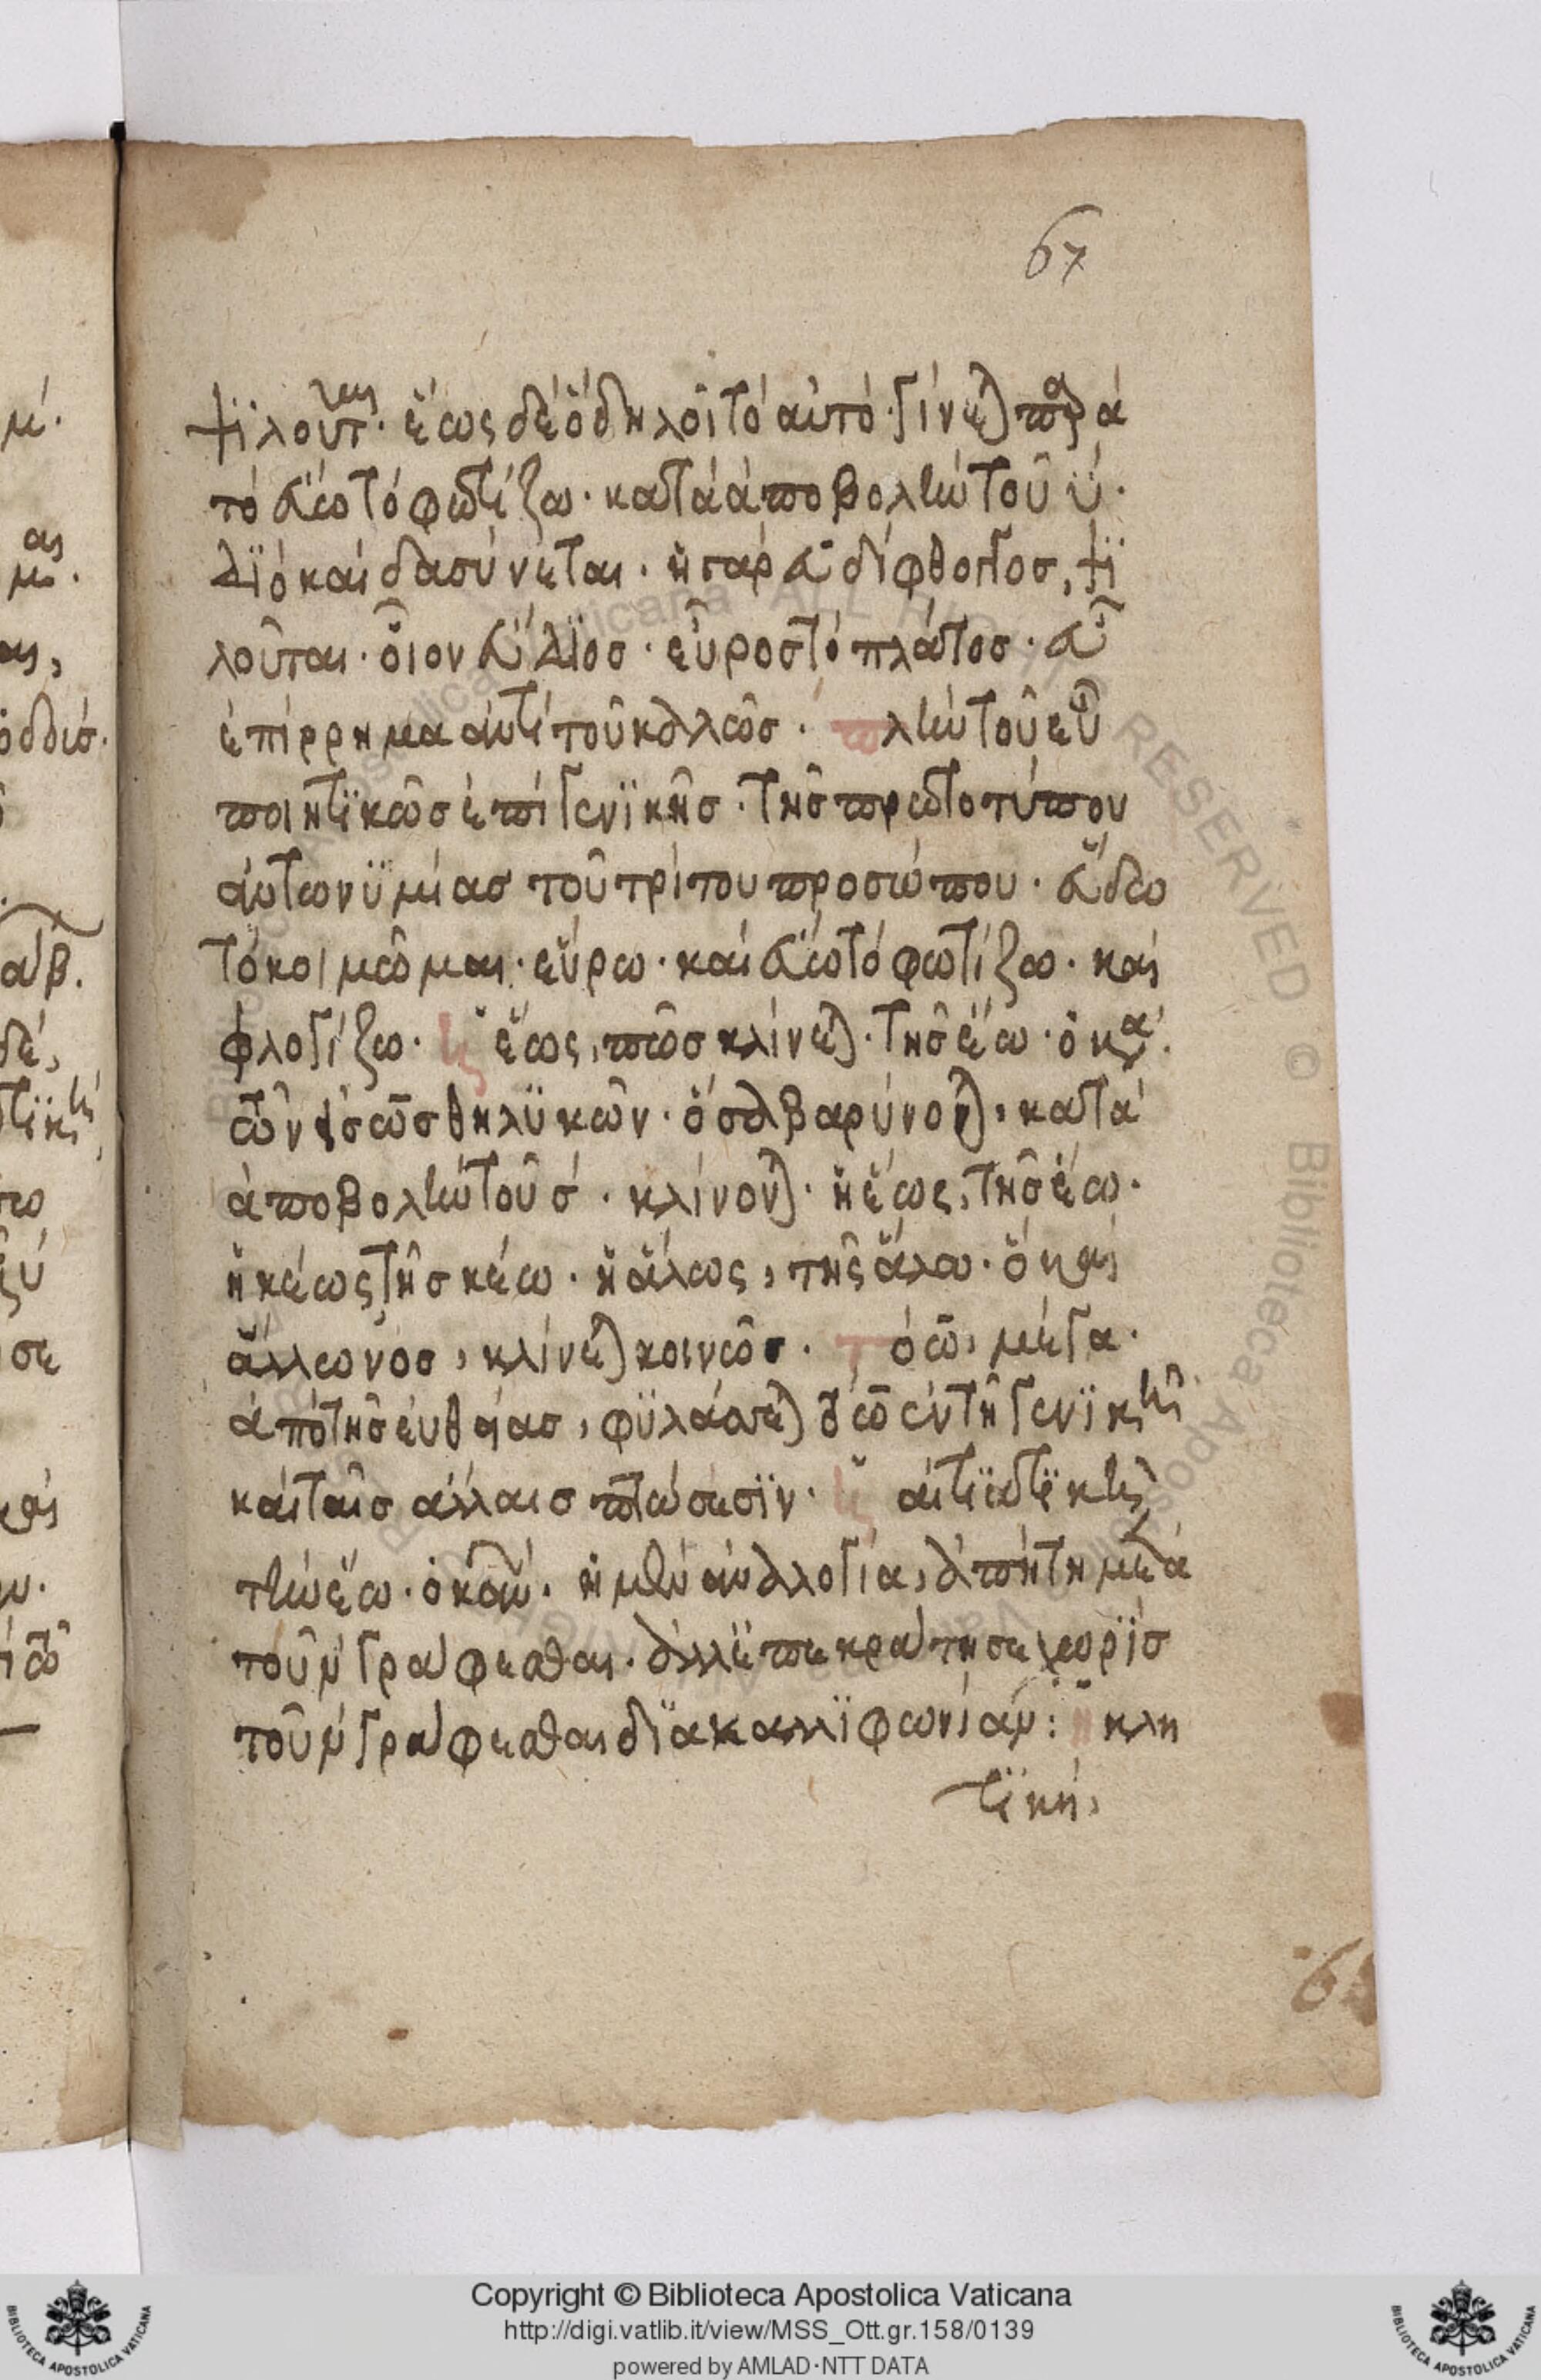 67
ψϊλοῦται. ἕως δὲ ὁ δηλοῖ τὸ αὐτὸ. γίνεται παρὰ
τὸ εὕω τὸ φωτίζω. κατὰ ἀποβολὴν τοῦ ὖ.
διὸ καὶ δασύνεται. ἡ γὰρ εὖ δίφθογγος, ψϊ
λοῦται. οἷον εὔδϊος. εὖρος τὸ πλάτος. εὖ
ἐπίρρημα ἀντὶ τοῦ καλῶς. πλὴν τοῦ εὗ
ποιητϊκῶς ἐπὶ γενϊκῆς. τῆς πρωτοτύπου
ἀντωνϋμίας τοῦ τρίτου προσώπου. εὕδω
τὸ κοιμῶμαι. εὕρω. καὶ εὕω τὸ φωτίζω. καὶ
φλογίζω. ἕως, πῶς κλίνεται. τῆς ἕω. ὁ κα
τῶν εἰς ως θηλϋκῶν. ὅσα βαρύνονται, κατὰ
ἀποβολὴν τοῦ σ. κλίνονται. ἡ ἕως, τῆς ἕω.
ἡ κέως τῆς κέω. ἡ ἅλως, τῆς ἅλω. ὃ καὶ
ἅλλωνος, κλίνεται κοινῶς. τὸ ω, μέγα.
ἀπὸ τῆς εὐθείας, φϋλάττεται τὸ ω ἐν τῇ γενϊκῇ
καὶ ταῖς ἄλλαις πτώσεσϊν. αἰτϊατϊκὴ
τὴν ἕω. ὁ κανὼν. ἡ μὲν ἀναλογία, ἀπῄτη μετὰ
τοῦ ν γράφεσθαι. ἀλλ' ἐπεκράτησε χωρὶς
τοῦ ν γράφεσθαι δϊὰ καλλϊφωνίαν: ἡ κλη
τϊκὴ,
Copyright © Biblioteca Apostolica Vaticana
http://digi.vatlib.it/view/MSS_Ott.gr.158/0139
powered by AMLAD·NTT DATA